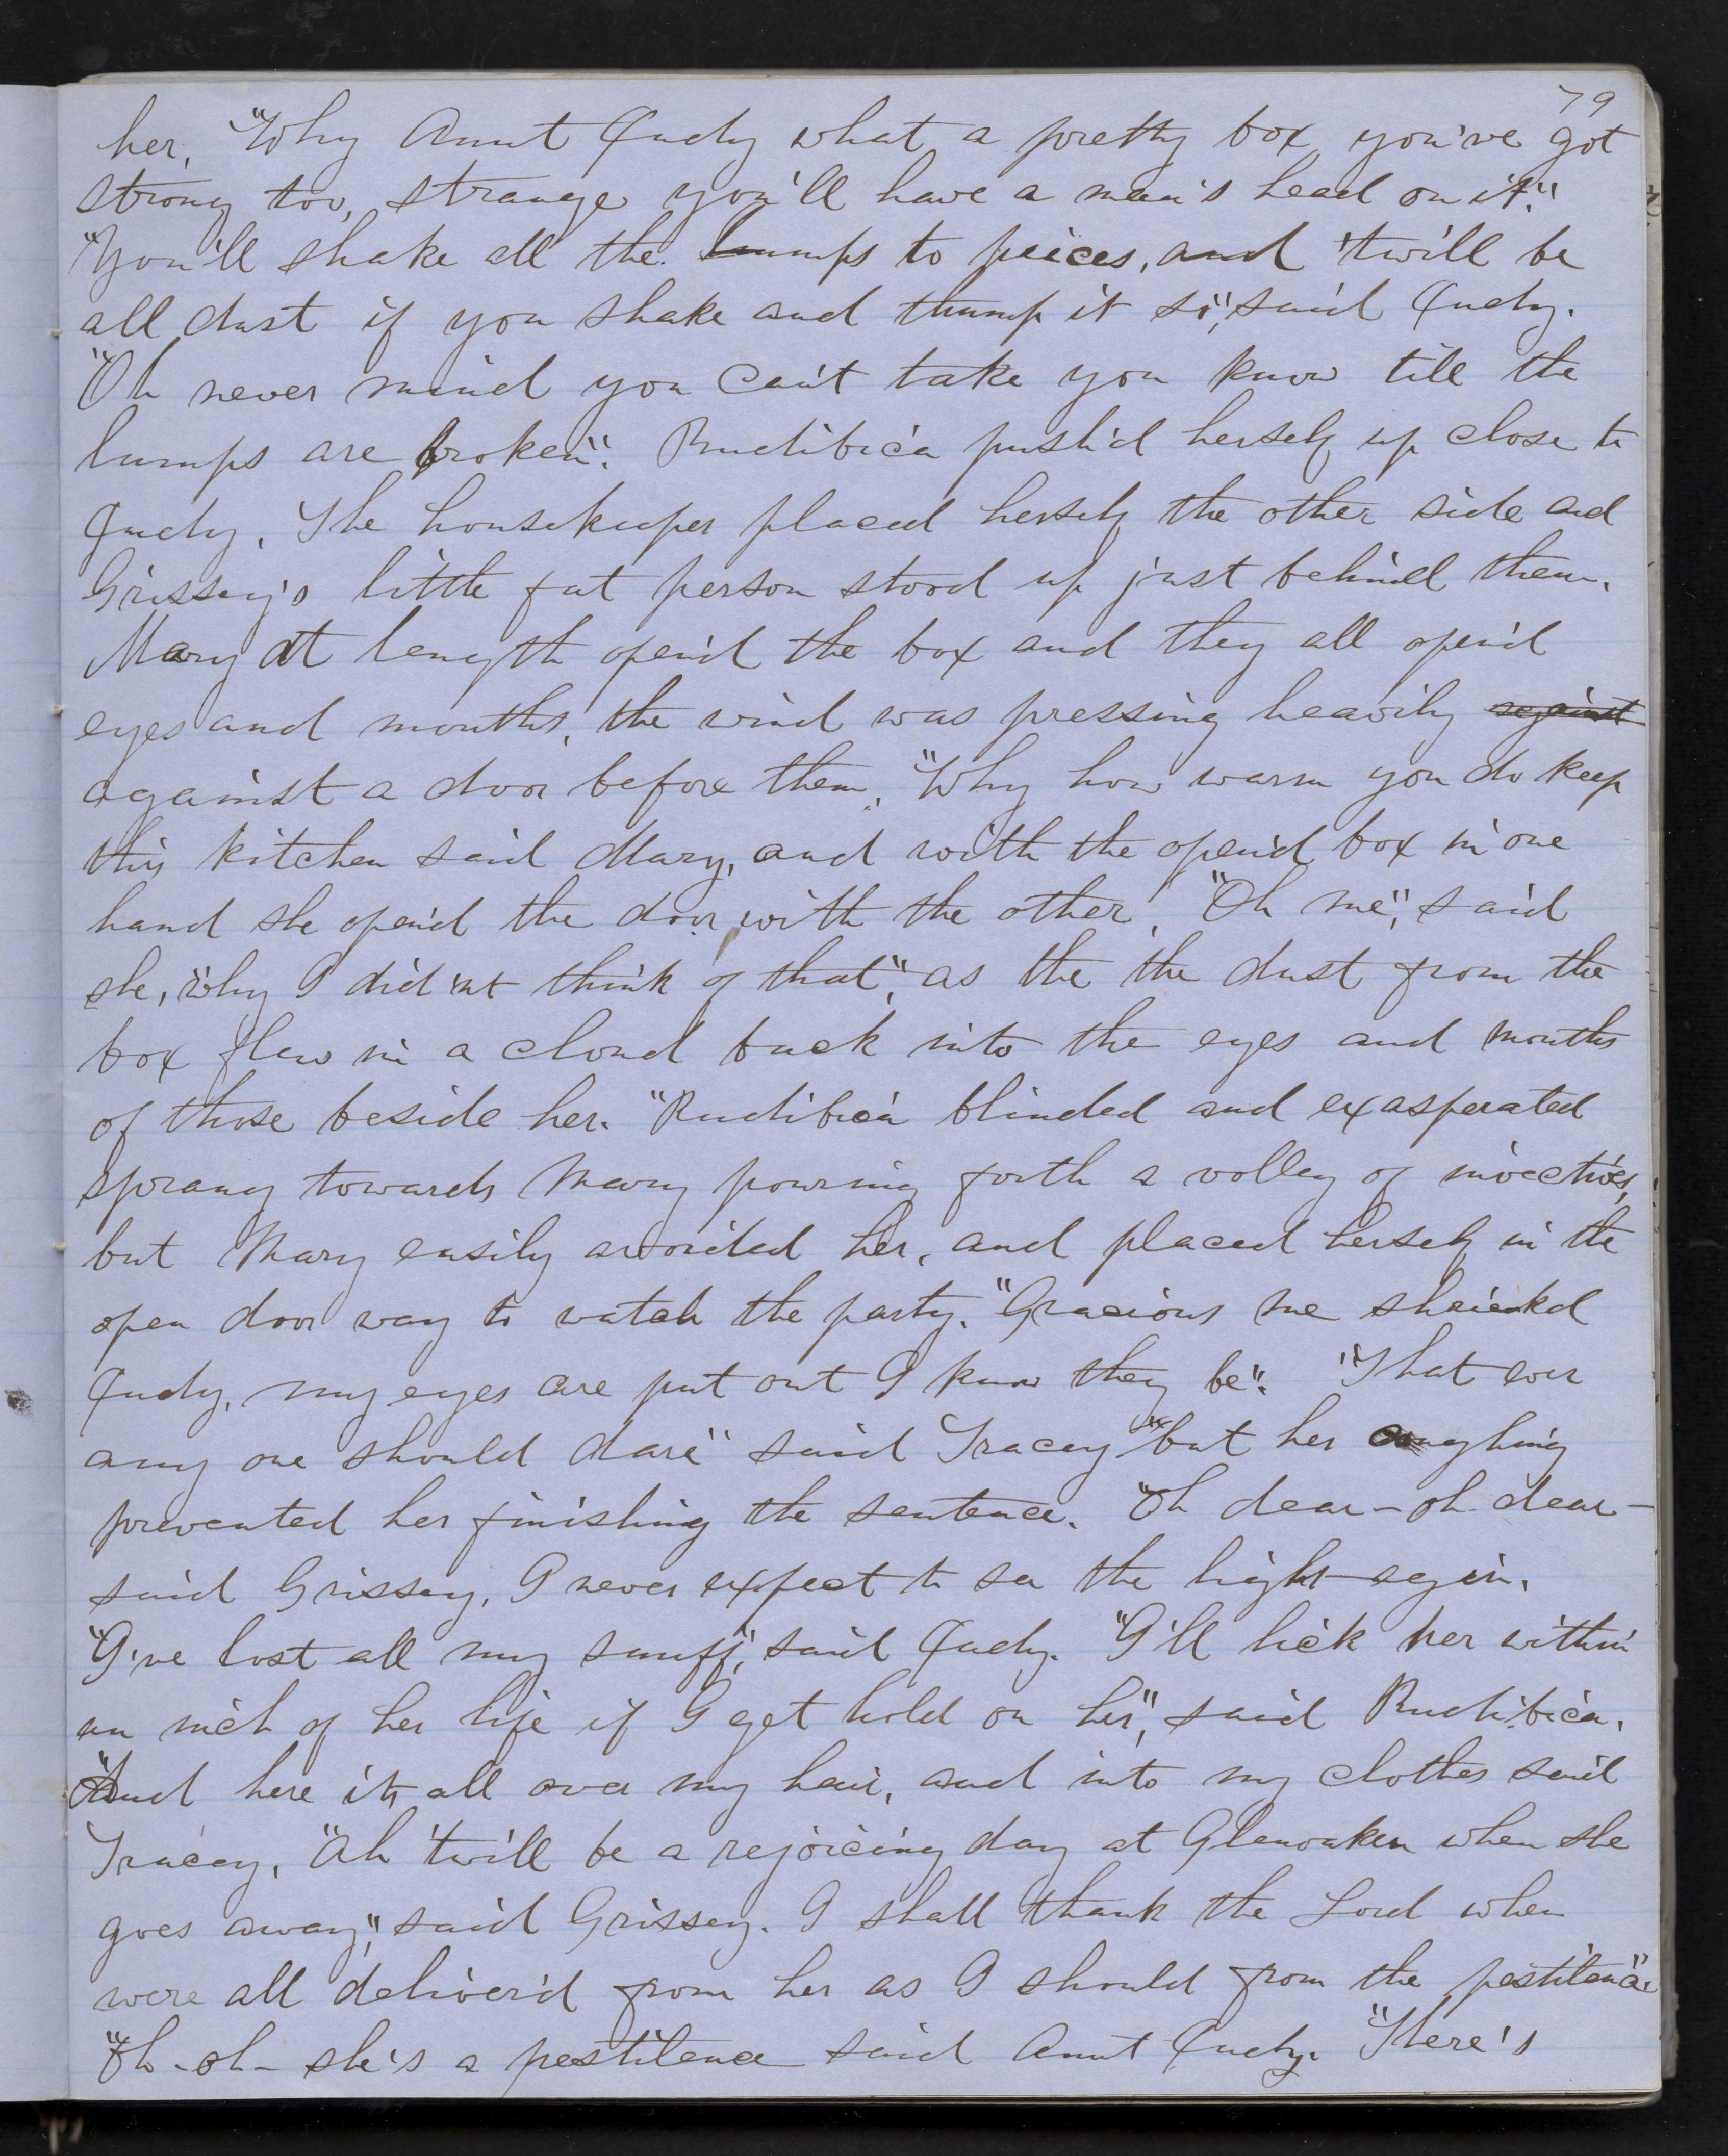 79
her, "Why Aunt Judy what a pretty box you've got
strong too, strange you'll have a man's head on it."
"You'll shake all the lumps to peices, and 'twill be
all dust if you shake and thump it so", said Judy.
"Oh never mind you can't take you know till the
lumps are broken". Rudibica push'd herself up close to
Judy, The housekeeper placed herself the other side and
Grissey's little fat person stood up just behind them.
Mary at length open'd the box and they all open'd
eyes and mouths, the wind was pressing heavily against
against a door before them, "Why how warm you do keep
this kitchen said Mary, and with the open'd box in one
hand she open'd the door with the other. "Oh me", said
she, "why I did'nt think of that", as the the dust from the
box flew in a cloud back into the eyes and mouths
of those beside her. "Rudibica blinded and exasperated
sprang towards Mary pouring forth a volley of invectives,
but Mary easily avoided her, and placed herself in the
open door way to watch the party. "Gracious me shrieked
Judy, my eyes are put out I know they be". "That ever
any one should dare" said Tracey but her coughing
prevented her finishing the sentence. "Oh dear – oh dear –
said Grissey, I never expect to see the light agin.
"I've lost all my snuff", said Judy. "I'll lick her within
an inch of her life if I get hold on her", said Rudibica.
"And here its all over my hair, and into my clothes said
Tracey, "Ah 'twill be a rejoicing day at Glenoaken when she
goes away", said Grissey. I shall thank the Lord when
were all deliver'd from her as I should from the pestilence".
"Oh – oh – she's a pestilence said Aunt Judy. "There's